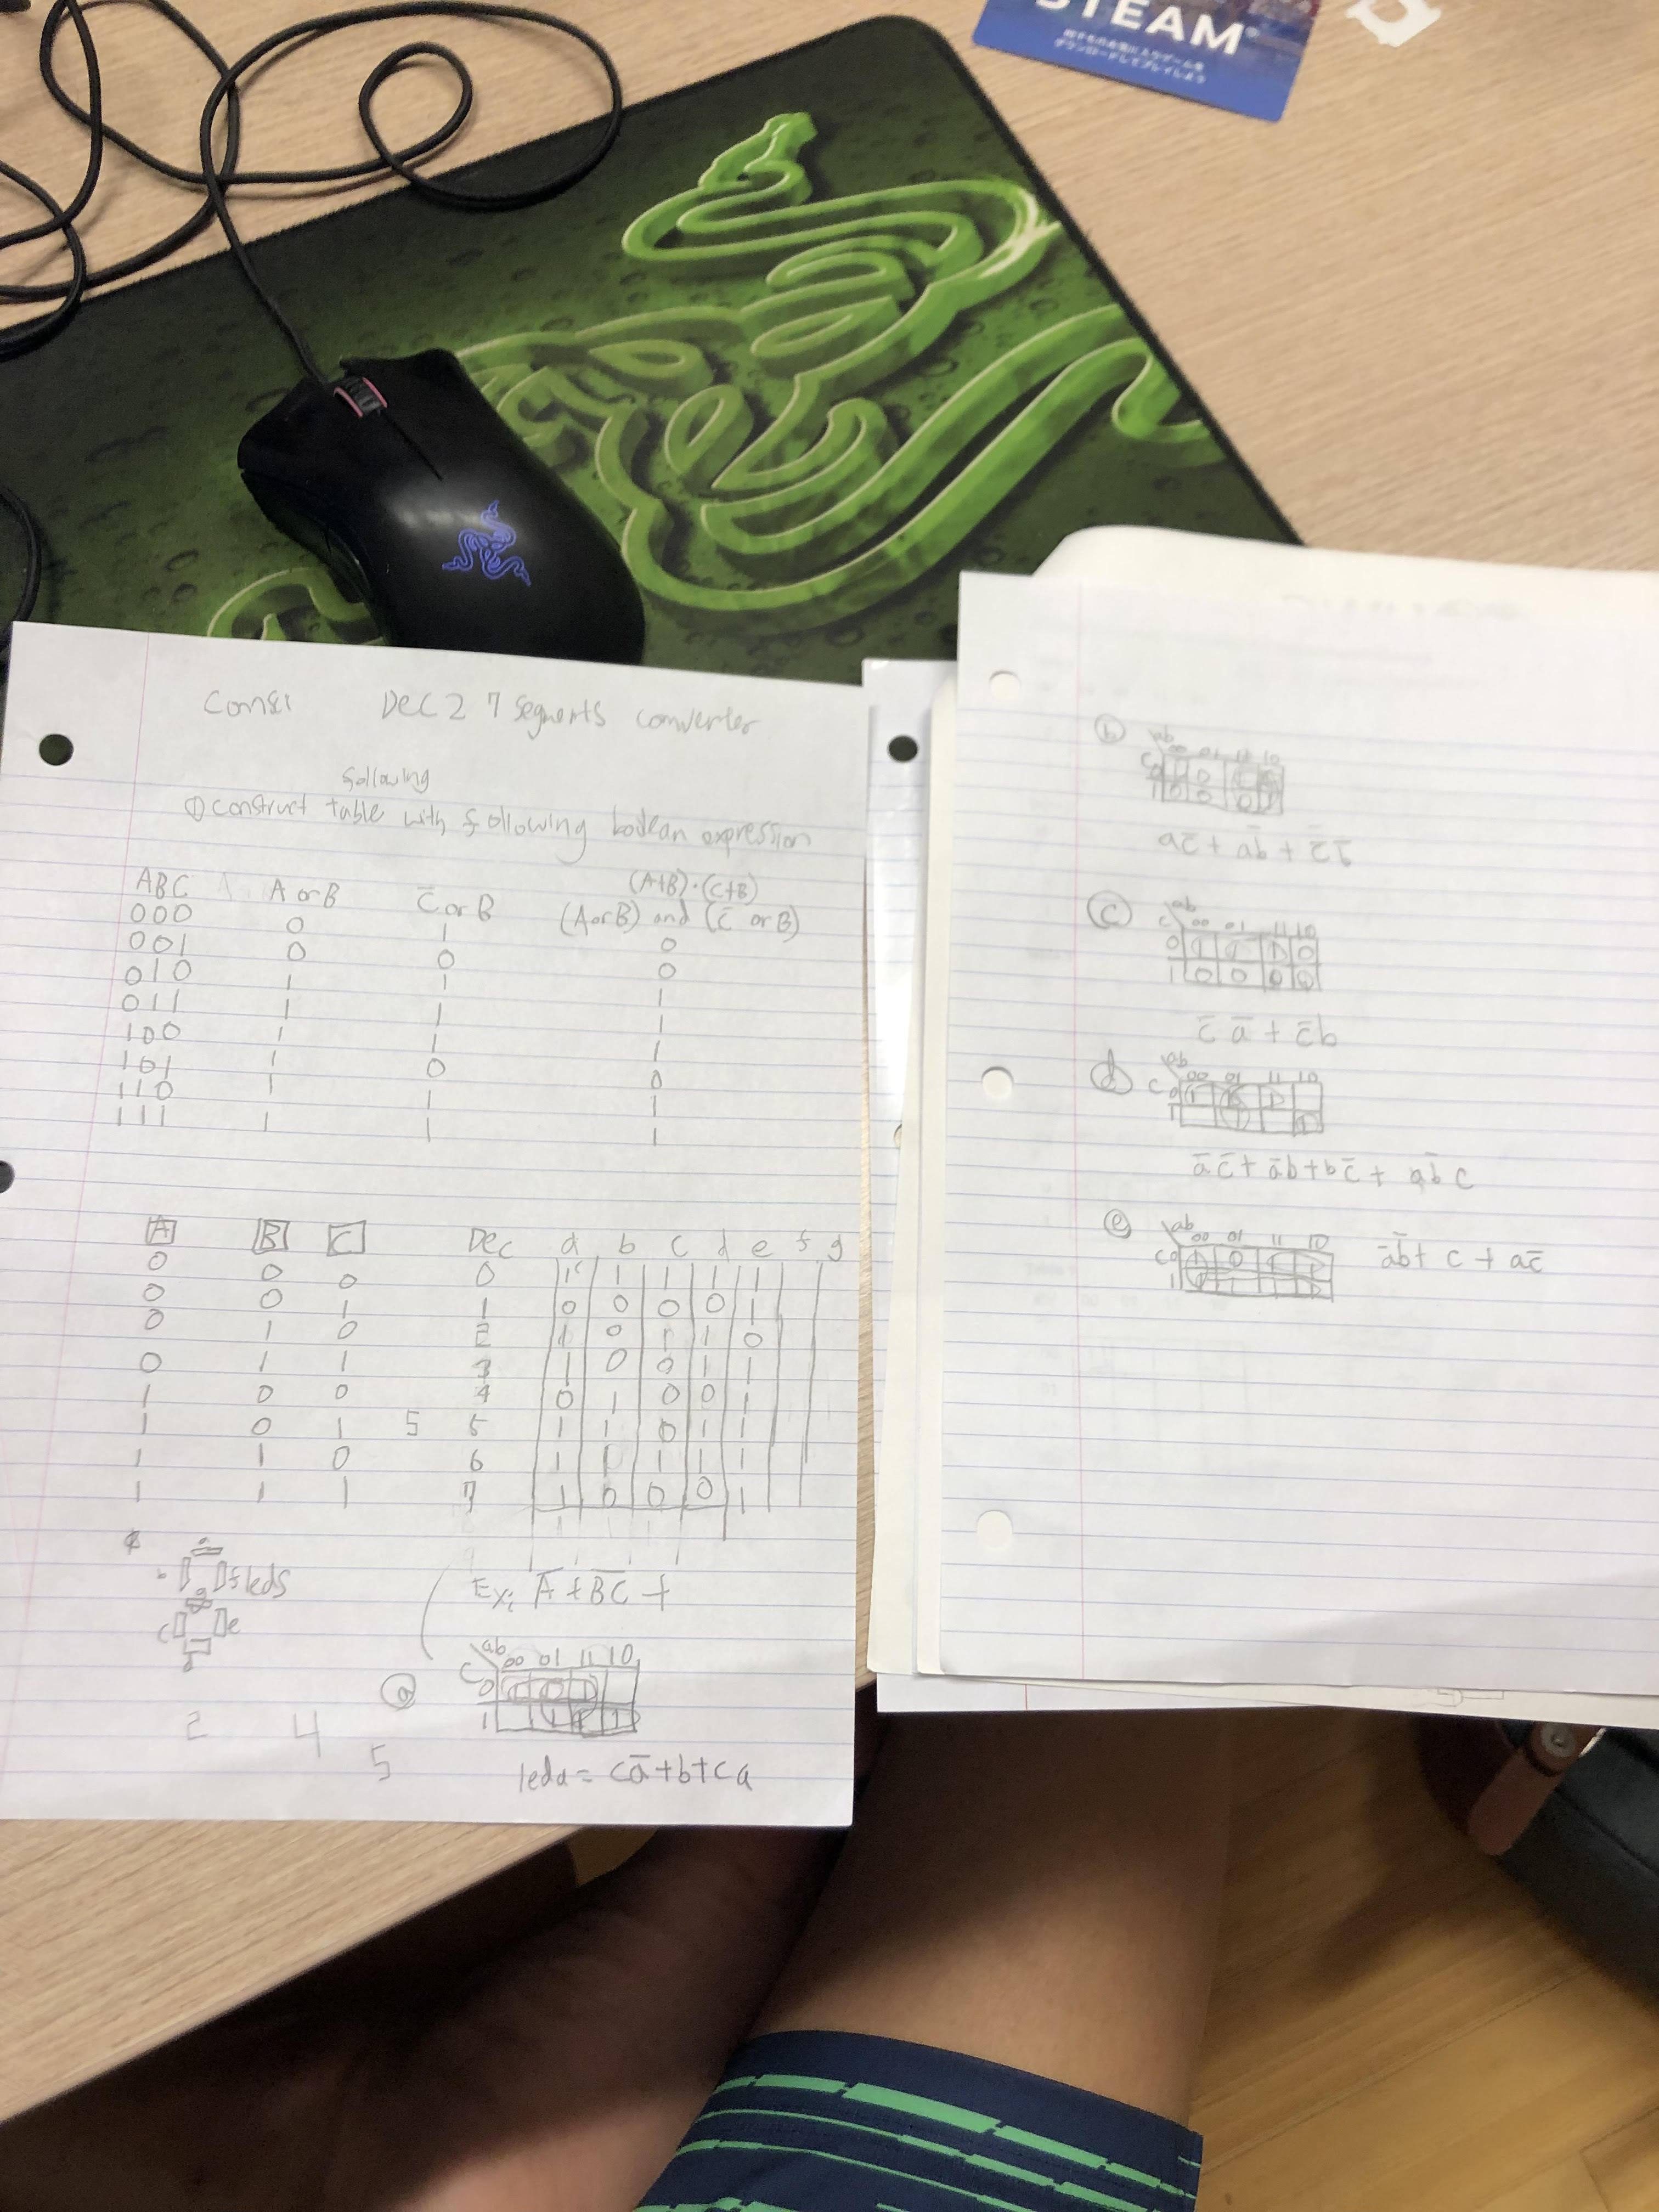 STEAM
相手もの名前に入りゲームを
ダウンロードしてプレイしよう
Dec 2 7 segments converter
following
① construct table with following boolean expression
ABC A or B C̄ or B (A+B)·(C+B)
(A or B) and (C̄ or B)
000 0 1 0
001 0 0 0
010 1 1 1
011 1 1 1
100 1 1 1
101 1 0 0
110 1 1 1
111 1 1 1
A B C Dec a b c d e f g
0 0 0 0 1 1 1 1 1
0 0 1 1 0 0 0 0 1
0 1 0 2 1 0 1 1 0
0 1 1 3 1 0 0 1 1
1 0 0 4 0 1 0 0 1
1 0 1 5 5 1 1 0 1 1
1 1 0 6 1 1 1 1 1
1 1 1 7 1 0 0 0 1
f leds
g
c e
d
Ex: A̅ + B̅C̅ +
ⓐ
ab
c 00 01 11 10
0 1 1 1
1 1 1 1
2 4 5
leda = cā+b+ca
ⓑ
ab
c 00 01 11 10
0 1 0 1 1
1 0 0 0 1
ac̄ + ab̄ +
ⓒ
ab
c 00 01 11 10
0 1 1 1 0
1 0 0 0 0
c̄ ā + c̄b
ⓓ
ab
c 00 01 11 10
0 1 1 1
1 1 1
āc̄ + āb + bc̄ + ab̄c
ⓔ
ab
c 00 01 11 10
0 1 0 1 1
1 1 1 1 1
āb̄ + c + ac̄